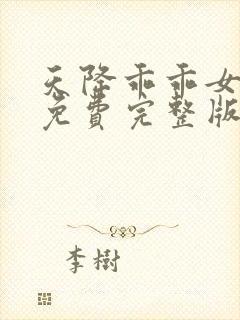 天降乖乖女
免费完整版
李樹